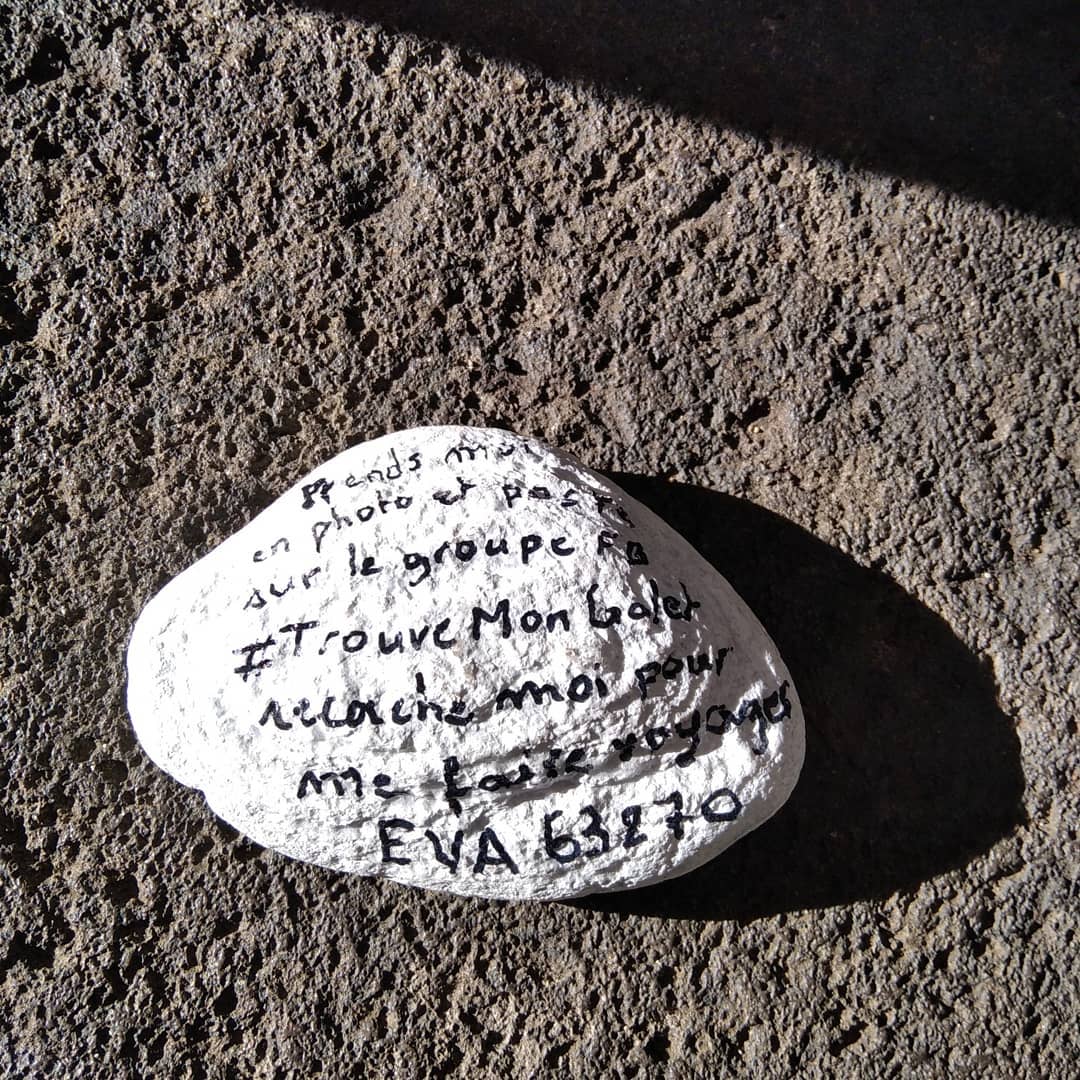 Prends moi
en photo et poste
sur le groupe FB
#Trouve Mon Galet
recache moi pour
me faire voyager
EVA 63270